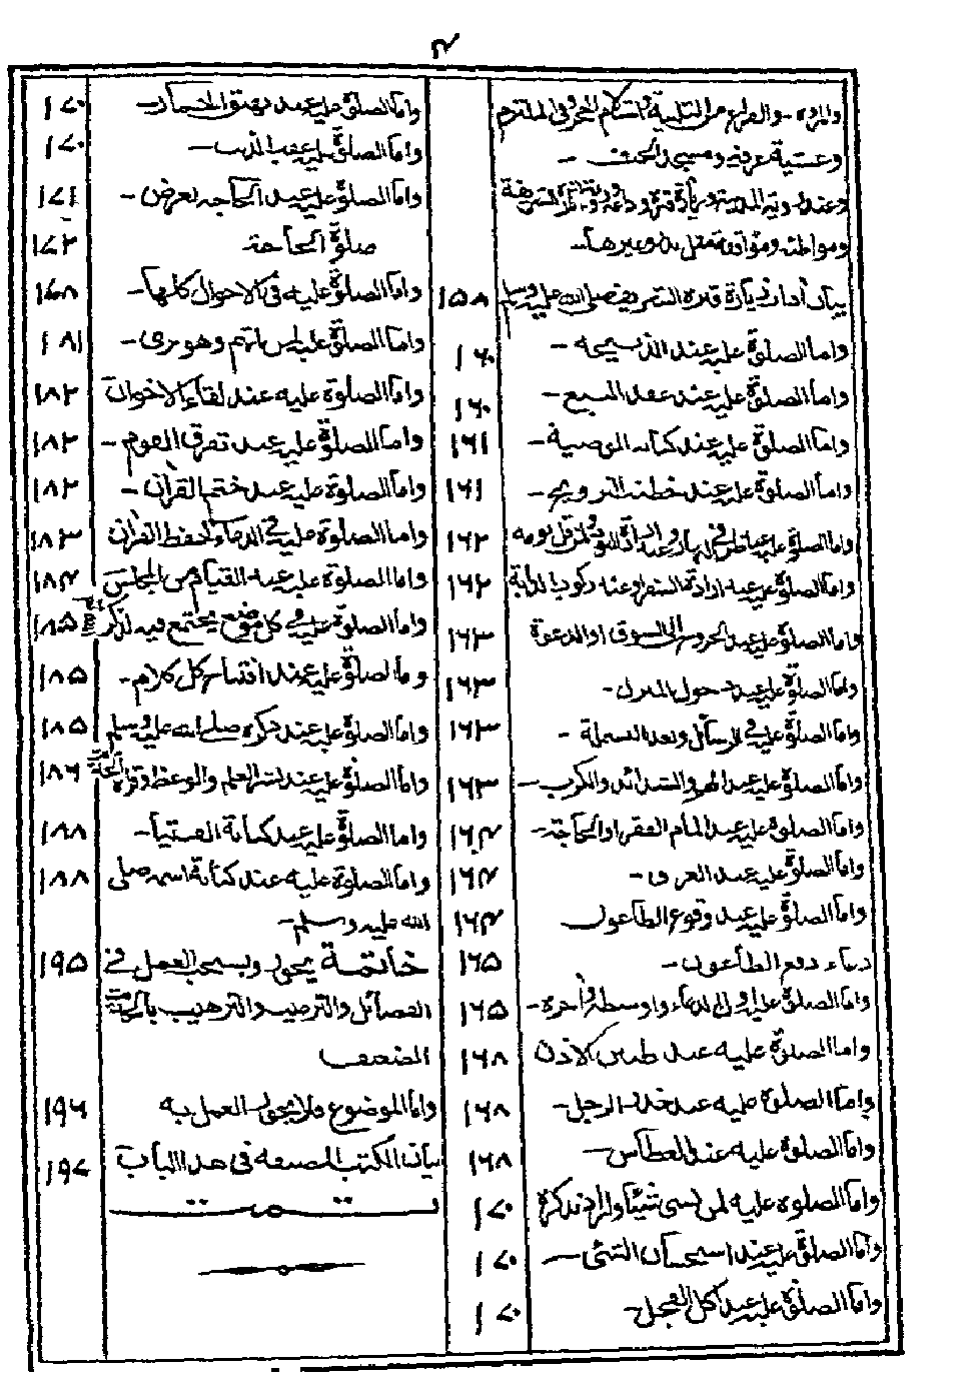 ٣
والمروة والفراغ من التلبية واستلام الحجر وفي الملتزم
وعشية عرفة ومسجد الخيف -
وعند رؤية المدينة وزيارة قبره ووداعه ورؤية آثاره الشريفة
ومواطنه ومواقفه مثل بدر وغيرها -
بيان آداب زيارة قبره الشريف صلى الله عليه وسلم ١٥٨
واما الصلوة عليه عند الذبيحة - ١٦٠
واما الصلوة عليه عند عقد البيع - ١٦٠
واما الصلوة عليه عند كتابة الوصية - ١٦١
واما الصلوة عليه عند خطبة التزويج - ١٦١
واما الصلوة عليه في طرفي النهار وعند ارادة النوم ولمن قل نومه ١٦٢
واما الصلوة عليه عند ارادة السفر وعند ركوب الدابة ١٦٢
واما الصلوة عليه عند الخروج الى السوق او الدعوة ١٦٣
واما الصلوة عليه عند دخول المنزل - ١٦٣
واما الصلوة عليه في الرسائل وبعد البسملة - ١٦٣
واما الصلوة عليه عند الهم والشدائد والكرب - ١٦٣
واما الصلوة عليه عند المام الفقر او الحاجة - ١٦٤
واما الصلوة عليه عند الغرق - ١٦٤
واما الصلوة عليه عند وقوع الطاعون ١٦٤
دعاء دفع الطاعون - ١٦٥
واما الصلوة عليه اول الدعاء واوسطه وآخره - ١٦٥
واما الصلوة عليه عند طنين الاذن ١٦٨
واما الصلوة عليه عند خدر الرجل - ١٦٨
واما الصلوة عليه عند العطاس - ١٦٨
واما الصلوة عليه لمن نسى شيئا واراد تذكره ١٧٠
واما الصلوة عليه عند استحسان الشئ - ١٧٠
واما الصلوة عليه عند اكل الفجل - ١٧٠
واما الصلوة عليه عند نهيق الحمار - ١٧٠
واما الصلوة عليه عقب الذنب - ١٧٠
واما الصلوة عليه عند الحاجة تعرض - ١٧١
صلوة الحاجة ١٧٢
واما الصلوة عليه في الاحوال كلها - ١٧٨
واما الصلوة عليه لمن اتهم وهو برى - ١٨١
واما الصلوة عليه عند لقاء الاخوان ١٨٢
واما الصلوة عليه عند تفرق القوم - ١٨٢
واما الصلوة عليه عند ختم القرآن - ١٨٢
واما الصلوة عليه في الدعاء لحفظ القرآن ١٨٣
واما الصلوة عليه عند القيام من المجلس ١٨٤
واما الصلوة عليه في كل موضع يجتمع فيه لذكر الله ١٨٥
وما الصلوة عليه عند افتتاح كل كلام - ١٨٥
واما الصلوة عليه عند ذكره صلى الله عليه وسلم ١٨٥
واما الصلوة عليه عند نشر العلم والوعظ وقراءة الحديث ١٨٦
واما الصلوة عليه عند كتابة الفتيا - ١٨٨
واما الصلوة عليه عند كتابة اسمه صلى ١٨٨
الله عليه وسلم -
خاتمة يجوز ويستحب العمل في ١٩٥
الفضائل والترغيب والترهيب بالحديث
الضعيف
واما الموضوع فلا يجوز العمل به ١٩٦
بيان الكتب المصنفة في هذا الباب ١٩٧
تمت